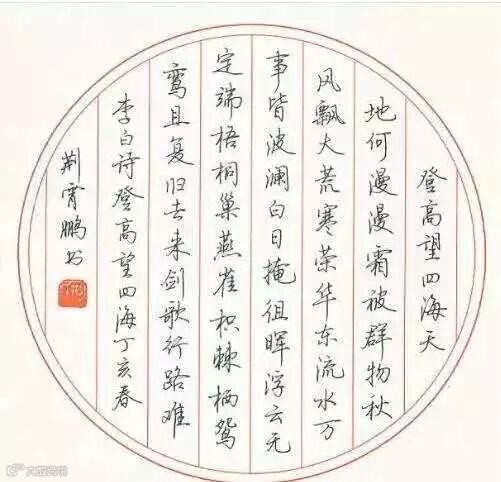 登高望四海天
地何漫漫霜被群物秋
风飘大荒寒荣华东流水万
事皆波澜白日掩徂晖浮云无
定端梧桐巢燕雀枳棘栖鸳
鸾且复归去来剑歌行路难
李白诗登高望四海丁亥春
荆霄鹏书